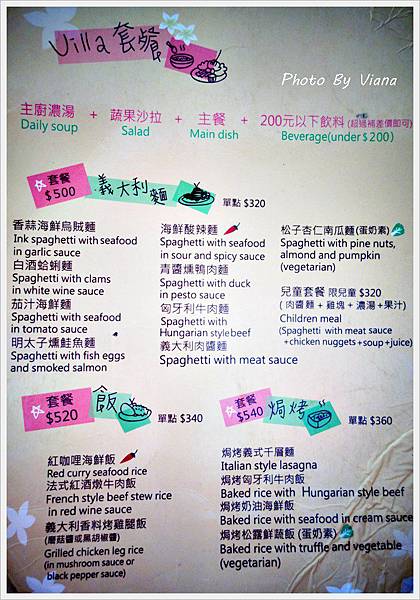 Villa 套餐
Photo By Viana
主廚濃湯 + 蔬果沙拉 + 主餐 + 200元以下飲料(超過補差價即可)
Daily soup Salad Main dish Beverage(under $200)
套餐 $500 義大利麵 單點 $320
香蒜海鮮烏賊麵
Ink spaghetti with seafood
in garlic sauce
白酒蛤蜊麵
Spaghetti with clams
in white wine sauce
茄汁海鮮麵
Spaghetti with seafood
in tomato sauce
明太子燻鮭魚麵
Spaghetti with fish eggs
and smoked salmon
海鮮酸辣麵
Spaghetti with seafood
in sour and spicy sauce
青醬燻鴨肉麵
Spaghetti with duck
in pesto sauce
匈牙利牛肉麵
Spaghetti with
Hungarian style beef
義大利肉醬麵
Spaghetti with meat sauce
松子杏仁南瓜麵(蛋奶素)
Spaghetti with pine nuts,
almond and pumpkin
(vegetarian)
兒童套餐 限兒童 $320
(肉醬麵+雞塊+濃湯+果汁)
Children meal
(Spaghetti with meat sauce
+chicken nuggets +soup+juice)
套餐 $520 飯 單點 $340
紅咖哩海鮮飯
Red curry seafood rice
法式紅酒燉牛肉飯
French style beef stew rice
in red wine sauce
義大利香料烤雞腿飯
(蘑菇醬或黑胡椒醬)
Grilled chicken leg rice
(in mushroom sauce or
black pepper sauce)
套餐 $540 焗烤 單點 $360
焗烤義式千層麵
Italian style lasagna
焗烤匈牙利牛肉飯
Baked rice with Hungarian style beef
焗烤奶油海鮮飯
Baked rice with seafood in cream sauce
焗烤松露鮮蔬飯(蛋奶素)
Baked rice with truffle and vegetable
(vegetarian)